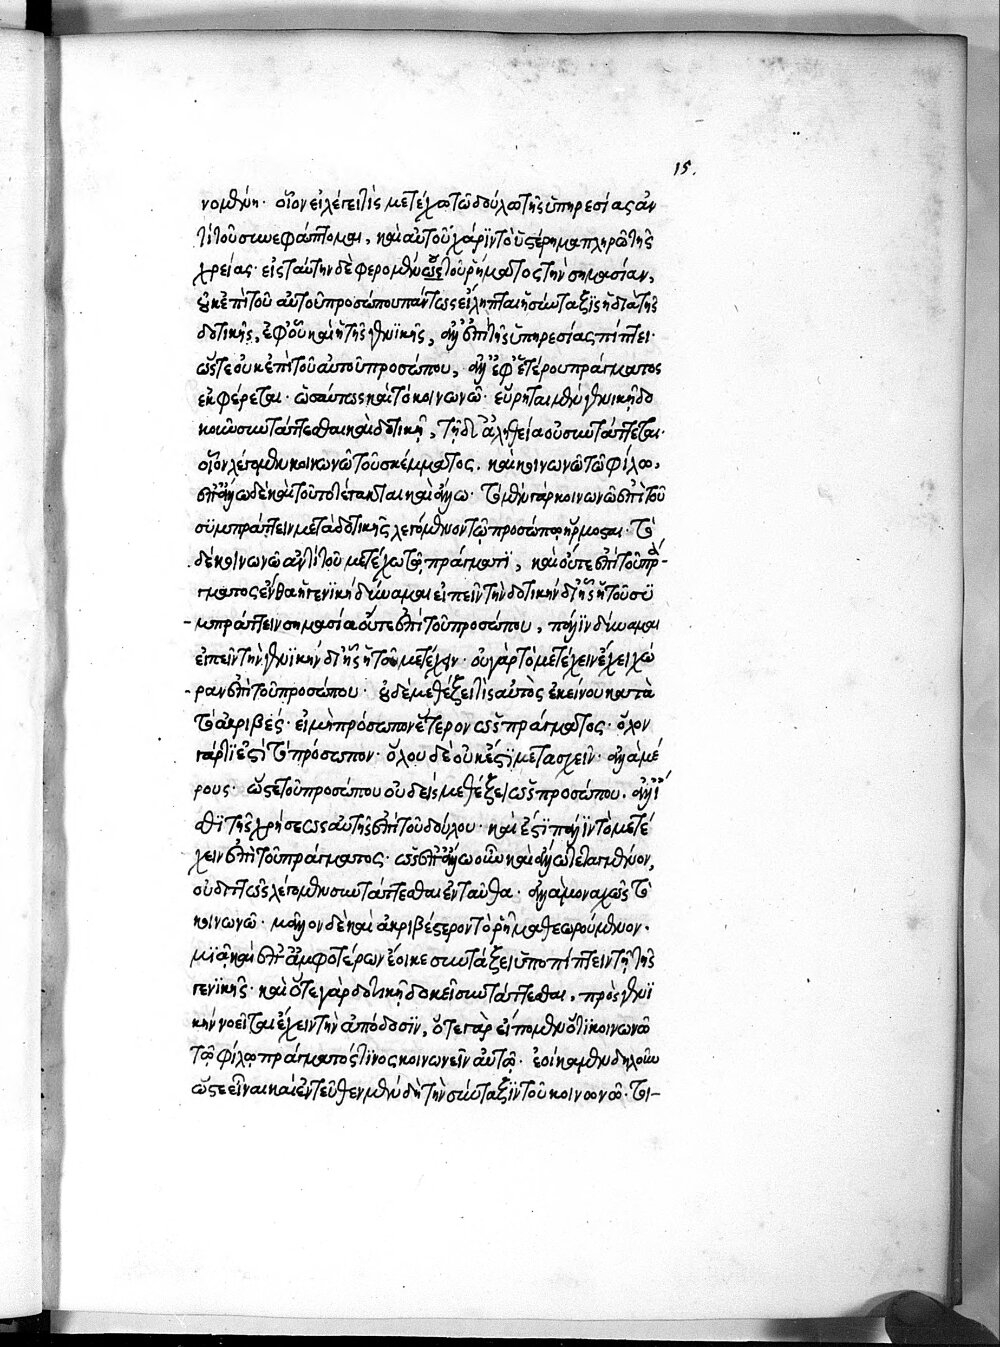 15.
νομένη· οἷον εἰ λέγει τὶς μετέχω τῶ δούλω τῆς ὑπηρεσίας ἀν
τὶ τοῦ συνεφάπτομαι, καὶ αὐτοῦ χάριν τὸ ὑστέρημα πληρῶ τῆς
χρείας· εἰς ταύτην δὲ φερομένης τοῦ ῥήματος τὴν σημασίαν,
οὐκ ἐπὶ τοῦ αὐτοῦ προσώπου πάντως εἴληπται ἡ σύνταξις ἡ διὰ τῆς
δοτικῆς, ἐφ' οὗ καὶ ἡ τῆς γενικῆς, ἀλλ' ἐπὶ τῆς ὑπηρεσίας πίπτει·
ὥστε οὐκ ἐπὶ τοῦ αὐτοῦ προσώπου, ἀλλ' ἐφ' ἑτέρου πράγματος
ἐκφέρεται· ὡσαύτως καὶ τὸ κοινωνῶ· εὕρηται μὲν γενικῆ δο
κοῦν συντάττεσθαι καὶ δοτικῆ, τῆ δ' ἀληθεία οὐ συντάττεται·
οἷον λέγομεν κοινωνῶ τοῦ σκέμματος, καὶ κοινωνῶ τῶ φίλω,
ἐπ' ἄλλω δὲ καὶ τοῦτο τέτακται καὶ ἄλλω· τὸ μὲν γὰρ κοινωνῶ ἐπὶ τοῦ
συμπράττειν μετὰ δοτικῆς λεγόμενον τῶ προσώπω ἥρμοσται· τὸ
δὲ κοινωνῶ ἀντὶ τοῦ μετέχω τῶ πράγματι, καὶ οὔτε ἐπὶ τοῦ πρά-
γματος ἔνθα ἡ γενικὴ δύναμαι εἰπεῖν τὴν δοτικὴν δι' ἧς ἡ τοῦ συ
μπράττειν σημασία οὔτε ἐπὶ τοῦ προσώπου, πάλιν δύναμαι
εἰπεῖν τὴν γενικὴν δι' ἧς ἡ τοῦ μετέχειν· οὐ γὰρ τὸ μετέχειν ἔχει χώ
ραν ἐπὶ τοῦ προσώπου· οὐδὲ μεθέξει τὶς αὐτὸς ἐκείνου κατὰ
τὸ ἀκριβὲς· εἰ μὴ πρόσωπον ἕτερον ὡς πράγματος· ὅλον
γάρ τι ἐστὶ τὸ πρόσωπον· ὅλου δὲ οὐκ ἔστι μετασχεῖν· ἀλλὰ μέ
ρους· ὥστε τοῦ προσώπου οὐδεὶς μεθέξει ὡς προσώπου. ἀλλ' εἰ
αὐτῆς ἐπὶ τοῦ δούλου· καὶ ἔστι πάλιν τὸ μετέ
χειν ἐπὶ τοῦ πράγματος· ὡς ἐπ' ἄλλω οὖν καὶ ἄλλω τεταγμένον,
οὐ διττῶς λέγομεν συντάττεσθαι ἐνταῦθα· ἀλλὰ μοναχῶς τὸ
κοινωνῶ· μᾶλλον δὲ καὶ ἀκριβέστερον τὸ ῥῆμα θεωρούμενον·
μιᾶ καὶ ἐπ' ἀμφοτέρων ἔοικε συντάξει ὑποπίπτειν τῆ τῆς
γενικῆς· καὶ ὅτε γὰρ δοτικῆ δοκεῖ συντάττεσθαι, πρὸς γενι
κὴν νοεῖται ἔχειν τὴν ἀπόδοσιν, ὅτε γὰρ εἴπομεν ὅτι κοινωνῶ
τῶ φίλω πράγματός τινος κοινωνεῖν αὐτῶ· ἐοίκαμεν δηλοῦν
ὥστε εἶναι καὶ ἐντεῦθεν μὲν δὴ τὴν σύνταξιν τοῦ κοινωνῶ· τι-